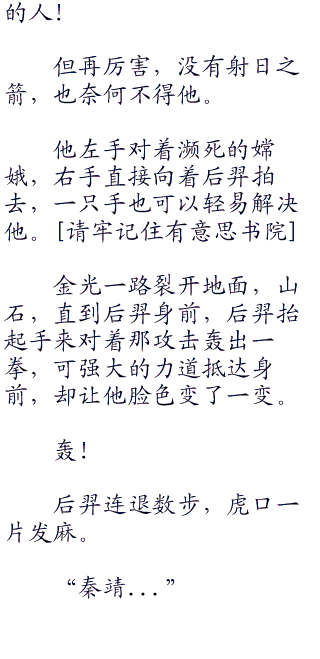 的人！
但再厉害，没有射日之
箭，也奈何不得他。
他左手对着濒死的嫦
娥，右手直接向着后羿拍
去，一只手也可以轻易解决
他。[请牢记住有意思书院]
金光一路裂开地面，山
石，直到后羿身前，后羿抬
起手来对着那攻击轰出一
拳，可强大的力道抵达身
前，却让他脸色变了一变。
轰！
后羿连退数步，虎口一
片发麻。
“秦靖...”